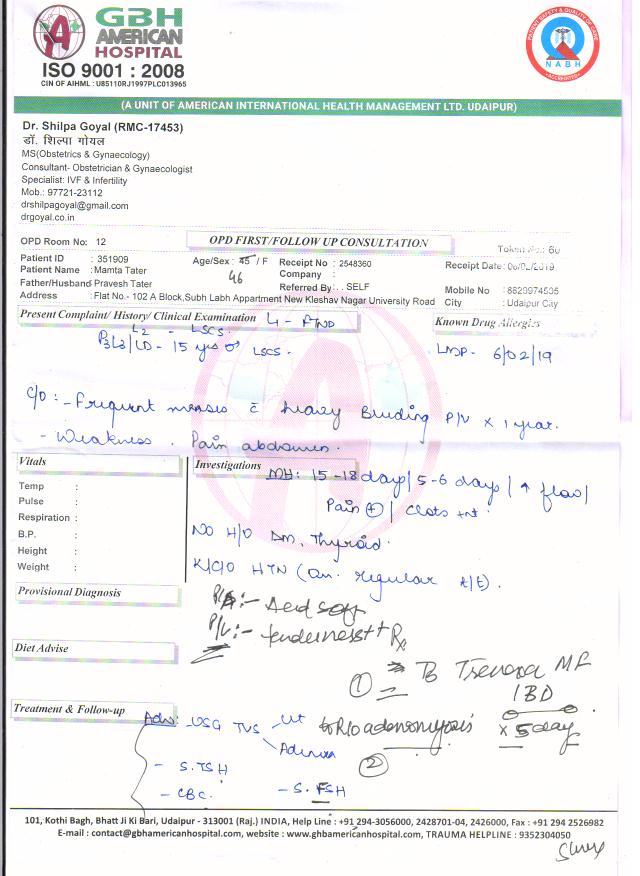 GBH
AMERICAN
HOSPITAL
ISO 9001 : 2008
CIN OF AIHML : U85110RJ1997PLC013965
PATIENT SAFETY & QUALITY OF CARE
NABH
ACCREDITED
(A UNIT OF AMERICAN INTERNATIONAL HEALTH MANAGEMENT LTD. UDAIPUR)
Dr. Shilpa Goyal (RMC-17453)
डॉ. शिल्पा गोयल
MS(Obstetrics & Gynaecology)
Consultant- Obstetrician & Gynaecologist
Specialist: IVF & Infertility
Mob.: 97721-23112
drshilpagoyal@gmail.com
drgoyal.co.in
OPD Room No: 12 OPD FIRST/FOLLOW UP CONSULTATION Token No.: 60
Patient ID : 351909 Age/Sex : 45 / F Receipt No : 2548360 Receipt Date: 06/02/2019
Patient Name : Mamta Tater 46 Company :
Father/Husband Pravesh Tater Referred By: . . SELF Mobile No : 8829974505
Address : Flat No.- 102 A Block,Subh Labh Appartment New Kleshav Nagar University Road City : Udaipur City
Present Complaint/ History/ Clinical Examination L1 - FTND Known Drug Allergies
L2 - LSCS
P2L2/LD - 15 yrs LSCS. LMP - 6/02/19
C/O :- Frequent menses c heavy Bleeding P/V x 1 year.
- Weakness . Pain abdomen.
Vitals Investigations MH: 15-18 day/ 5-6 days / ↑ flow/
Temp : Pain (+) / Clots +nt.
Pulse :
Respiration : NO H/O DM, Thyroid.
B.P. :
Height : K/C/O HTN (on regular t/t).
Weight :
Provisional Diagnosis P/A :- soft
P/V :- tenderness++ Rx
Diet Advise
① Tb MF
1BD
x 5 day
Treatment & Follow-up Adv: - USG TVS Ut to R/o adenomyosis
Adnexa
②
- S. TSH
- CBC. - S. FSH
101, Kothi Bagh, Bhatt Ji Ki Bari, Udaipur - 313001 (Raj.) INDIA, Help Line : +91 294-3056000, 2428701-04, 2426000, Fax : +91 294 2526982
E-mail : contact@gbhamericanhospital.com, website : www.gbhamericanhospital.com, TRAUMA HELPLINE : 9352304050